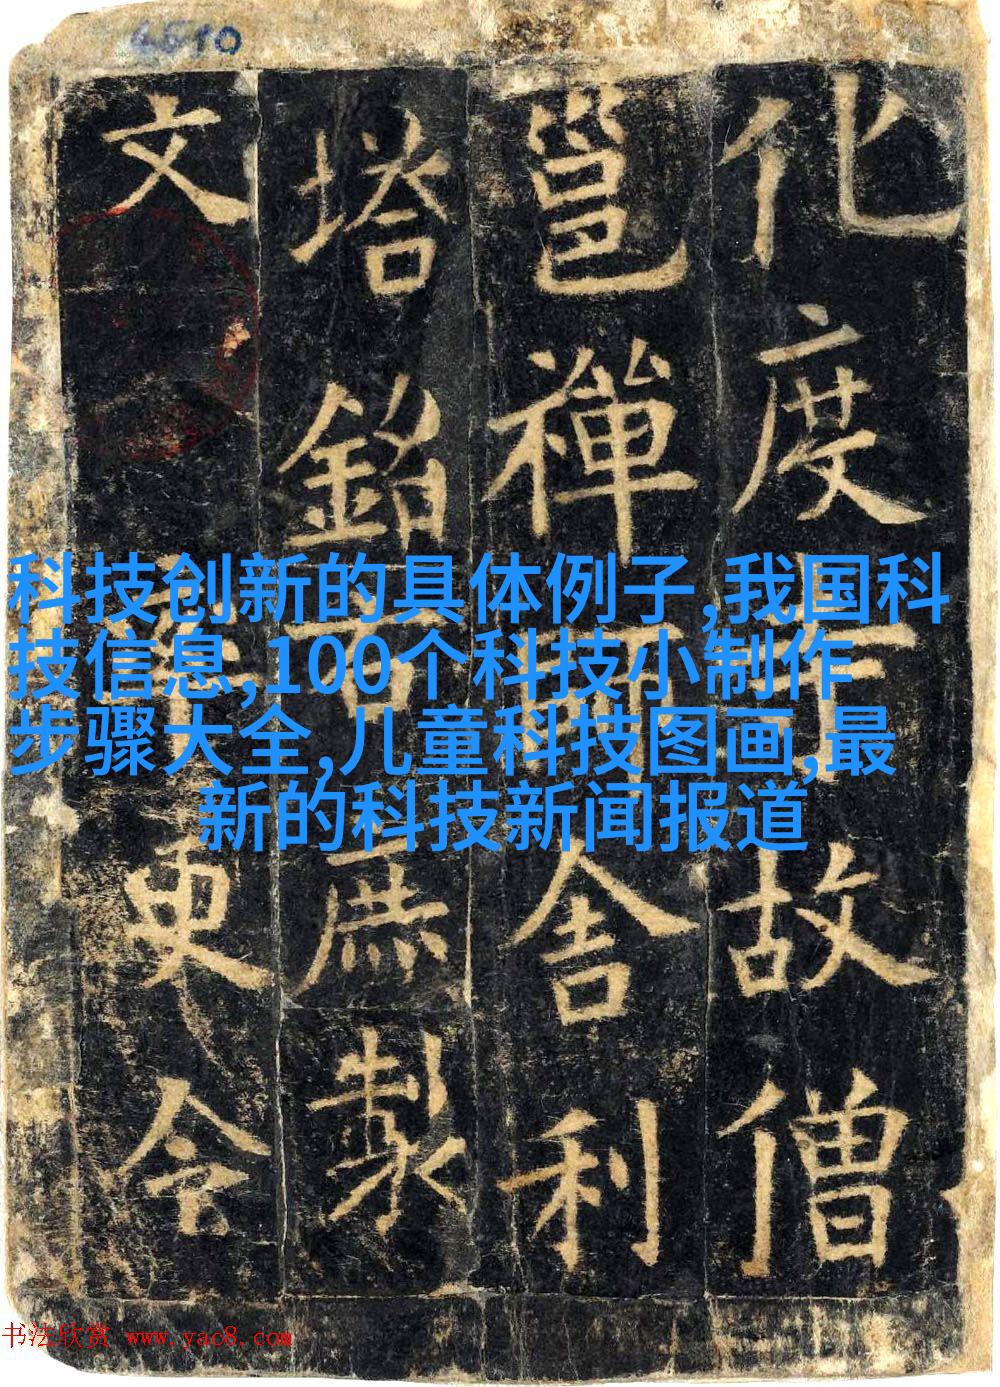 化度寺故僧
邕禪師舍利
塔銘右庶製
文率更令
科技创新的具体例子,我国科
技信息,100个科技小制作
步骤大全,儿童科技图画,最
新的科技新闻报道
书法欣赏 www.yac8.com